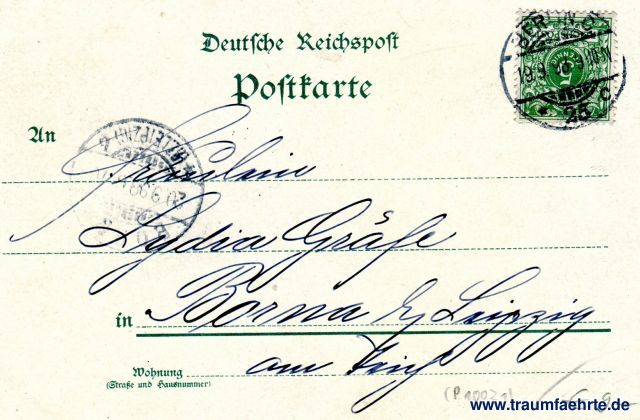 Deutsche Reichspost
Postkarte
BERLIN
25 C
An
Fräulein
Lydia Gräfe
in Borna b/Leipzig
am Teich
Wohnung
(Straße und Hausnummer)
www.traumfaehrte.de